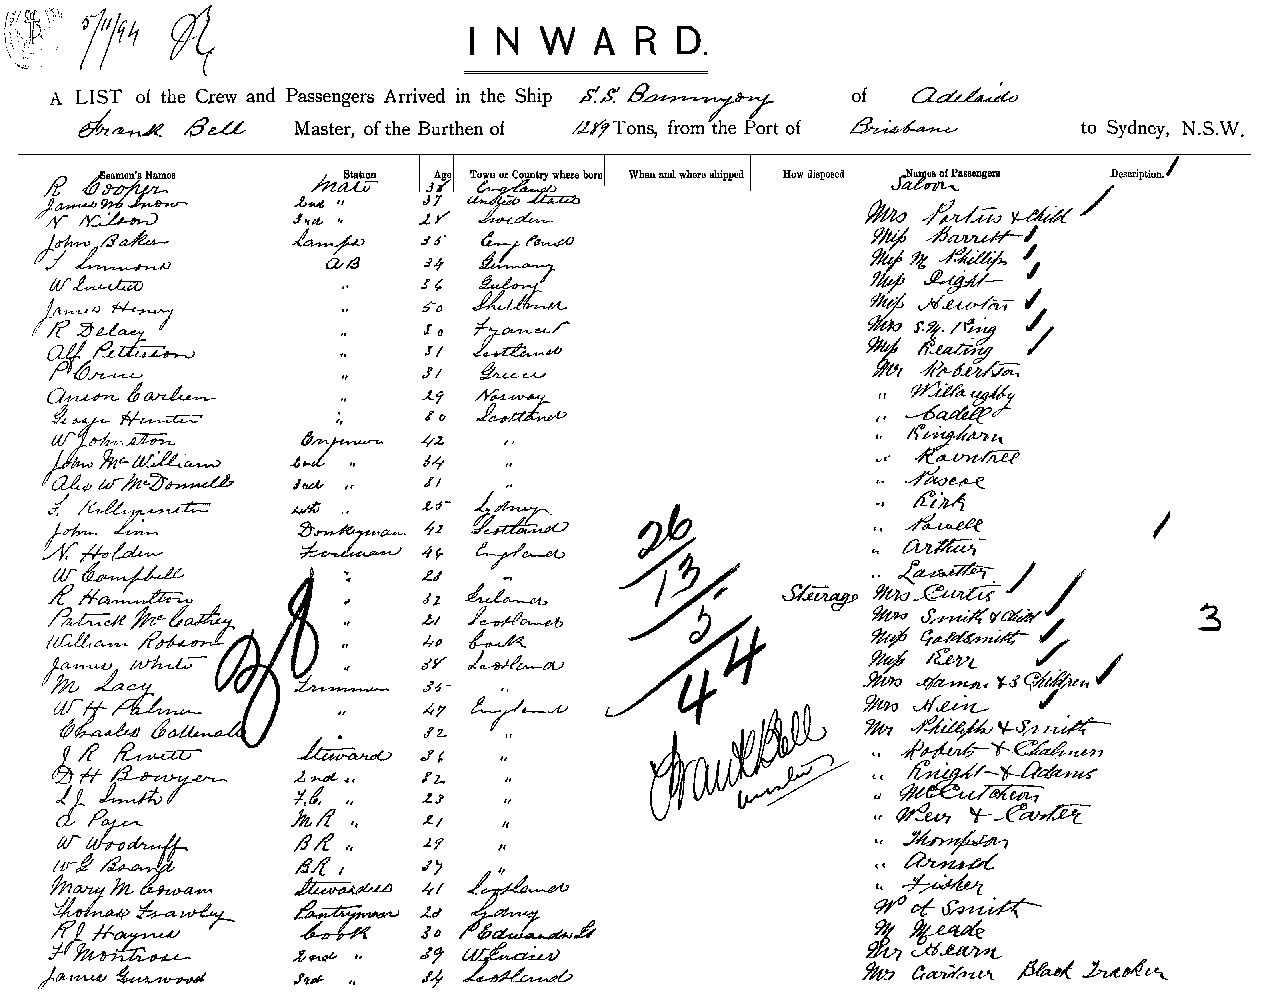 5/11/94
INWARD.
A LIST of the Crew and Passengers Arrived in the Ship S.S. Buninyong of Adelaide
Frank Bell Master, of the Burthen of 1289 Tons, from the Port of Brisbane to Sydney, N.S.W.
Seamen's Names Station Age Town or Country where born When and where shipped How disposed Names of Passengers Description.
R Cooper Mate 38 England Saloon
James McSnow 2nd " 37 United States
N Nilson 3rd " 28 Sweden Mrs Portus & Child
John Baker Lamps 35 England Miss Barrett
Simmons AB 34 Germany Miss M Phillips
W " 36 Miss Dight
James Henry " 50 Miss Newton
R Delacy " 30 France Mrs S.W. King
Alf Petterson " 31 Scotland Miss Keating
P Orne " 31 Greece Mr Robertson
Anson Carlsen " 29 Norway " Willoughby
George Hunter " 30 Scotland " Cadell
W Johnston Engineer 42 " " Kinghorn
John McWilliam 2nd " 34 " " Rowntree
Alex W McDonnell 3rd " 31 " " Pascoe
F. 4th " 25 Sydney " Kirk
John Linn Donkeyman 42 Scotland " Powell
N. Holden Fireman 46 England " Arthur
W Campbell " 28 " " Lassetter
R Hamilton " 32 Ireland Steerage Mrs Curtis
Patrick McCarthy " 21 Scotland Mrs Smith & Child
William Robson " 40 Cork Miss Goldsmith
James White " 38 Scotland Miss Kerr
M Lacy Trimmer 35 " Mrs Harmon & 3 Children
W H Palmer " 47 England Mrs Hein
Charles " 32 " Mr Phillips & Smith
J R Rivett Steward 36 " " Roberts & Chalmers
D H Bowyer 2nd " 32 " " Knight & Adams
L J Smith F.C. " 23 " " McCutcheon
A M R " 21 " " Weir & Carter
W Woodruff B R " 29 " " Thompson
W G Brand B R " 37 " " Arnold
Mary McCowan Stewardess 41 Scotland " Fisher
Thomas Frawley Pantryman 28 Sydney Smith
R J Haynes Cook 30 P Edwards Is M Meade
F Montrose 2nd " 39 W Indies Mr Hearn
James Gurwood 3rd " 34 Scotland Mrs Gardner Black Tracker
38
26
13
5
44
3
Frank Bell
Master